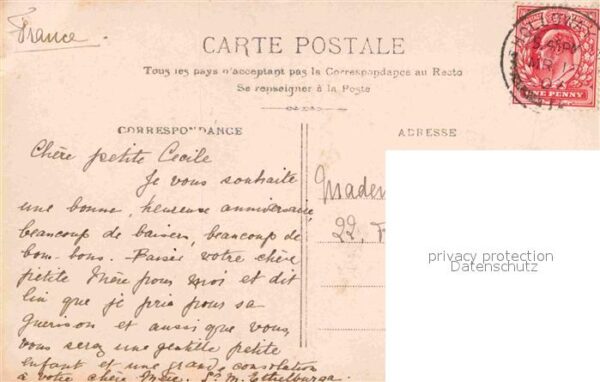 France
HOLLOWAY
CARTE POSTALE
Tous les pays n'acceptant pas la Correspondance au Recto
Se renseigner à la Poste
ONE PENNY
CORRESPONDANCE
ADRESSE
Chère petite Cecile
Je vous souhaite
une bonne, heureuse anniversaire,
beaucoup de baisers, beaucoup de
bom-bons. Baisée votre chère
petite Mère pour moi et dit
lui que je prie pour sa
guerison et aussi que vous
vous serez une gentille petite
enfant et une grande consolation
à votre chère Mère. Sr M. Ethelburga.
Madem
22,
privacy protection
Datenschutz